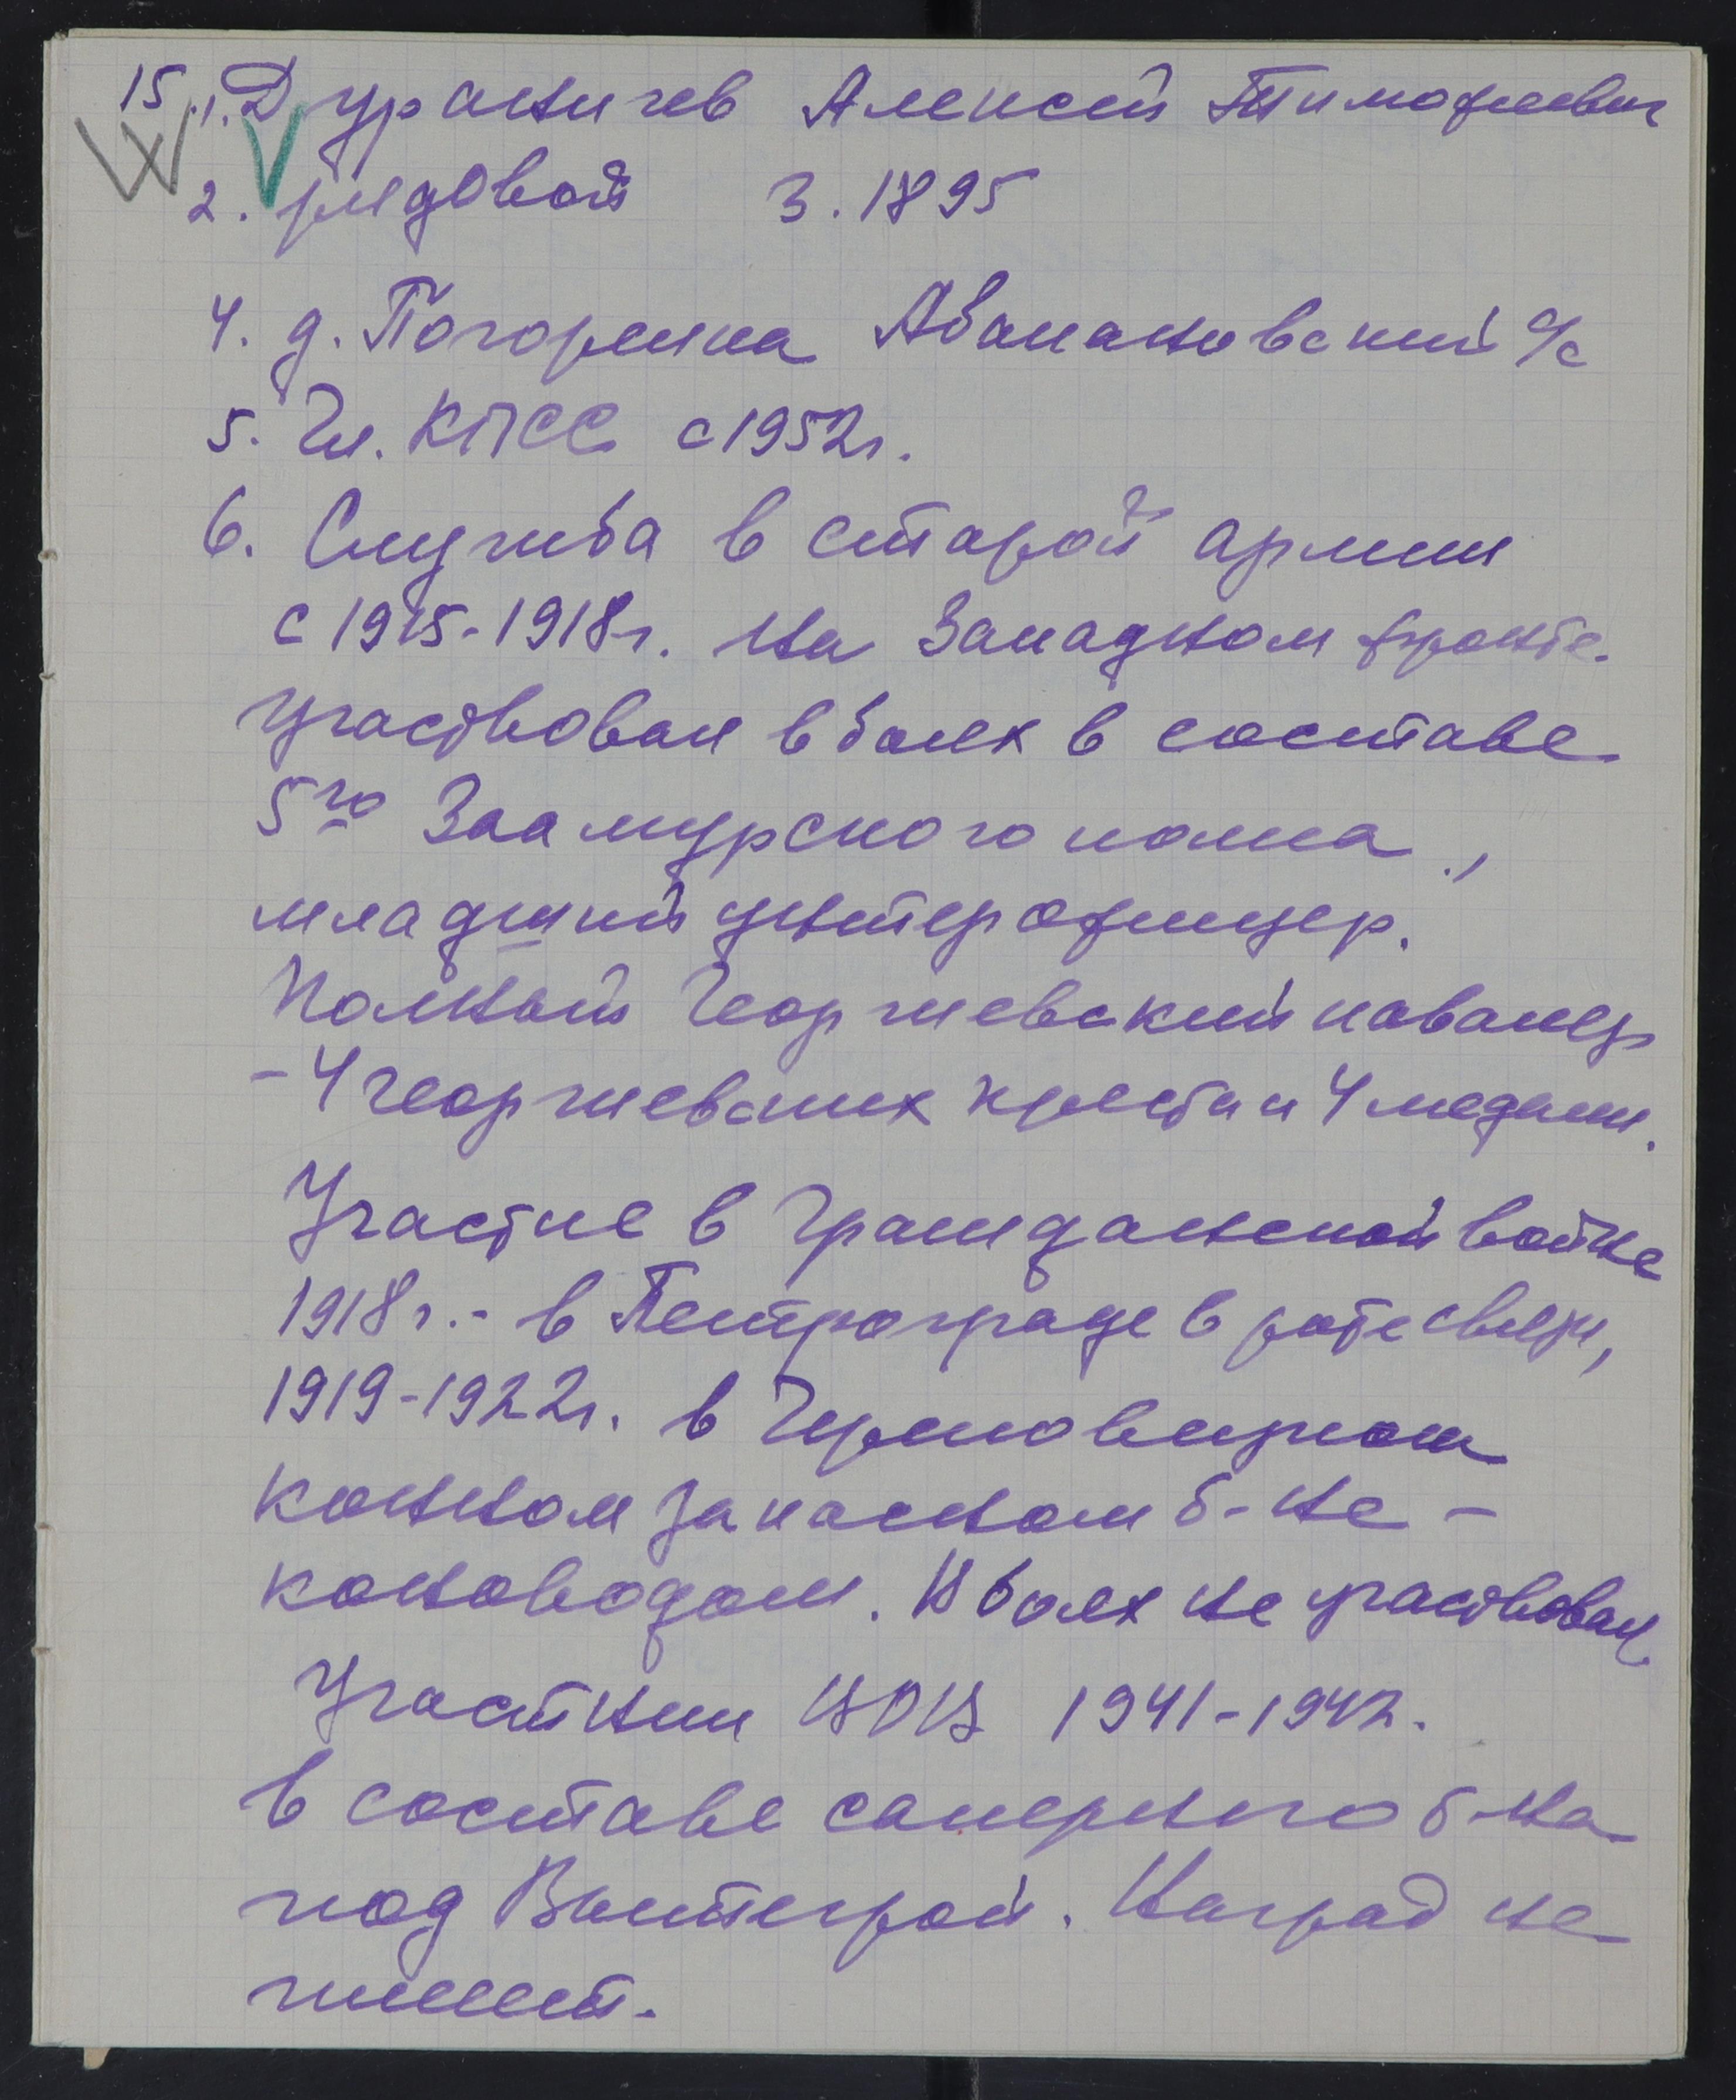 15. 1. Дураничев Алексей Тимофеевич
2. рядовой 3. 1895
4. д. Погорелка Абакановский с/с
5. Чл. КПСС с 1952г.
6. Служба в старой армии
с 1915-1918г. на Западном фронте.
Участвовал в боях в составе
5го Заамурского полка,
младший унтерофицер.
Полный Георгиевский кавалер
- 4 георгиевских креста и 4 медали.
Участие в Гражданской войне
1918г. - в Петрограде в роте связи,
1919-1922г. в Череповецком
конном запасном б-не -
коноводом. В боях не участвовал
Участник ВОВ 1941-1942.
в составе саперного б-на
под Вытегрой. Наград не
имеет.